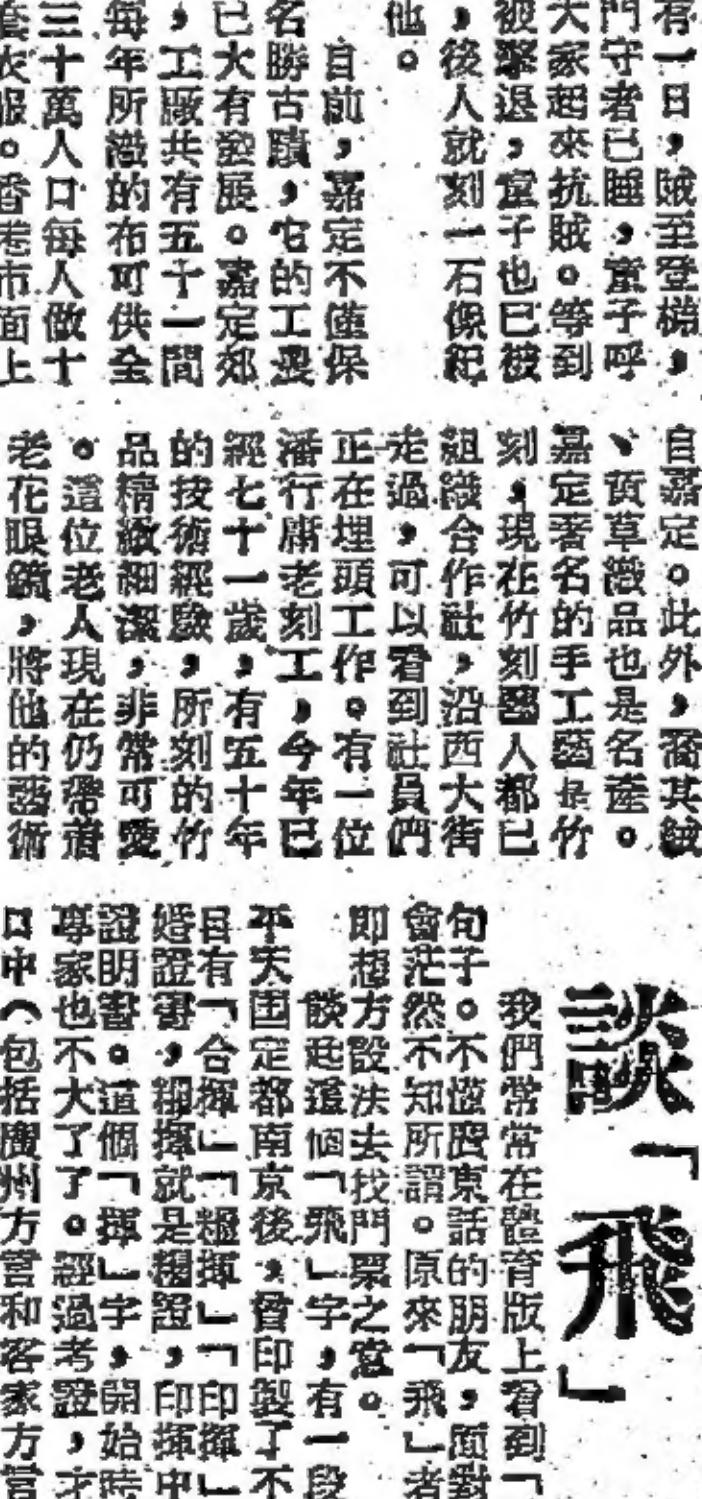 有一日，賊至登梯，
門守者已睡，童子呼
大家起來抗賊。等到
被擊退，童子也已被
，後人就刻一石像紀
他。
自前，嘉定不僅保
名勝古蹟，它的工農
已大有發展。嘉定郊
，工廠共有五十一間
每年所織的布可供全
三十萬人口每人做十
套衣服。香港市面上
自嘉定。此外，裔其絨
、黃草織品也是名產。
嘉定著名的手工藝是竹
刻，現在竹刻藝人都已
組織合作社，沿西大街
走過，可以看到社員們
正在埋頭工作。有一位
潘行庸老刻工，今年已
經七十一歲，有五十年
的技術經驗，所刻的竹
品精緻細潔，非常可愛
。這位老人現在仍帶着
老花眼鏡，將他的藝術
談「飛」
我們常常在體育版上看到「
句子。不諳廣東話的朋友，面對
會茫然不知所謂。原來「飛」者
即想方設法去找門票之意。
談起這個「飛」字，有一段
平天囯定都南京後，曾印製了不
目有「合揮」「糧揮」「印揮」
婚證書，糧揮就是糧證，印揮中
證明書。這個「揮」字，開始時
專家也不大了了。經過考證，才
口中（包括廣州方言和客家方言